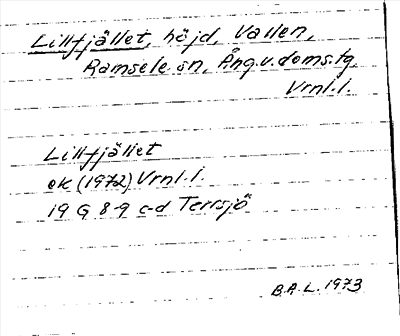 Lillfjället, höjd, Vallen,
Ramsele sn, Ång.v.doms.tg,
Vrnl.l.
Lillfjället
ek (1972) Vrnl.l.
19 G 8-9 c-d Terrsjö
B.A.L. 1973